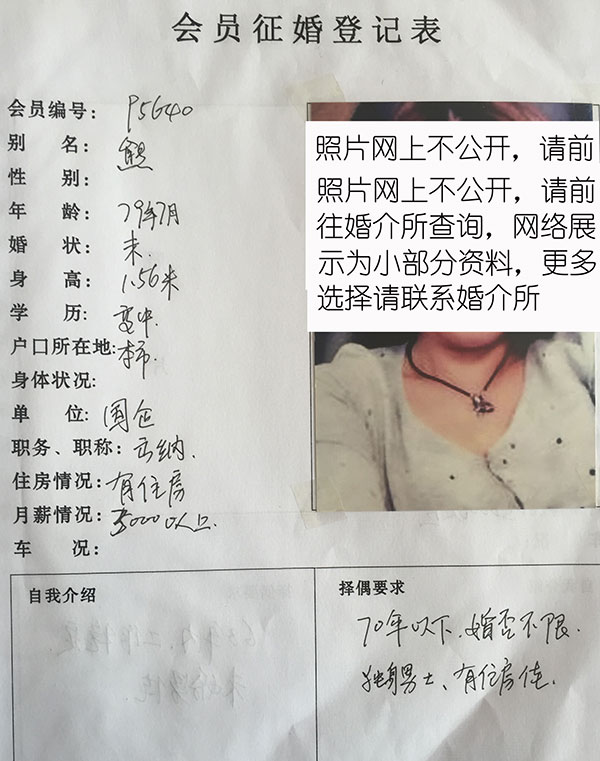 会员征婚登记表
会员编号: P5640
别 名: 熊
性 别:
年 龄: 79年7月
婚 状: 未.
身 高: 1.56米
学 历: 高中
户口所在地: 本市.
身体状况:
单 位: 国企
职务、职称: 出纳.
住房情况: 有住房
月薪情况: 3000以上.
车 况:
照片网上不公开，请前
照片网上不公开，请前
往婚介所查询，网络展
示为小部分资料，更多
选择请联系婚介所
自我介绍
择偶要求
70年以下.婚否不限.
独身男士、有住房住.